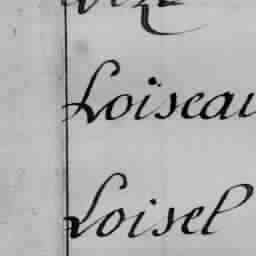 Loiseau
Loisel